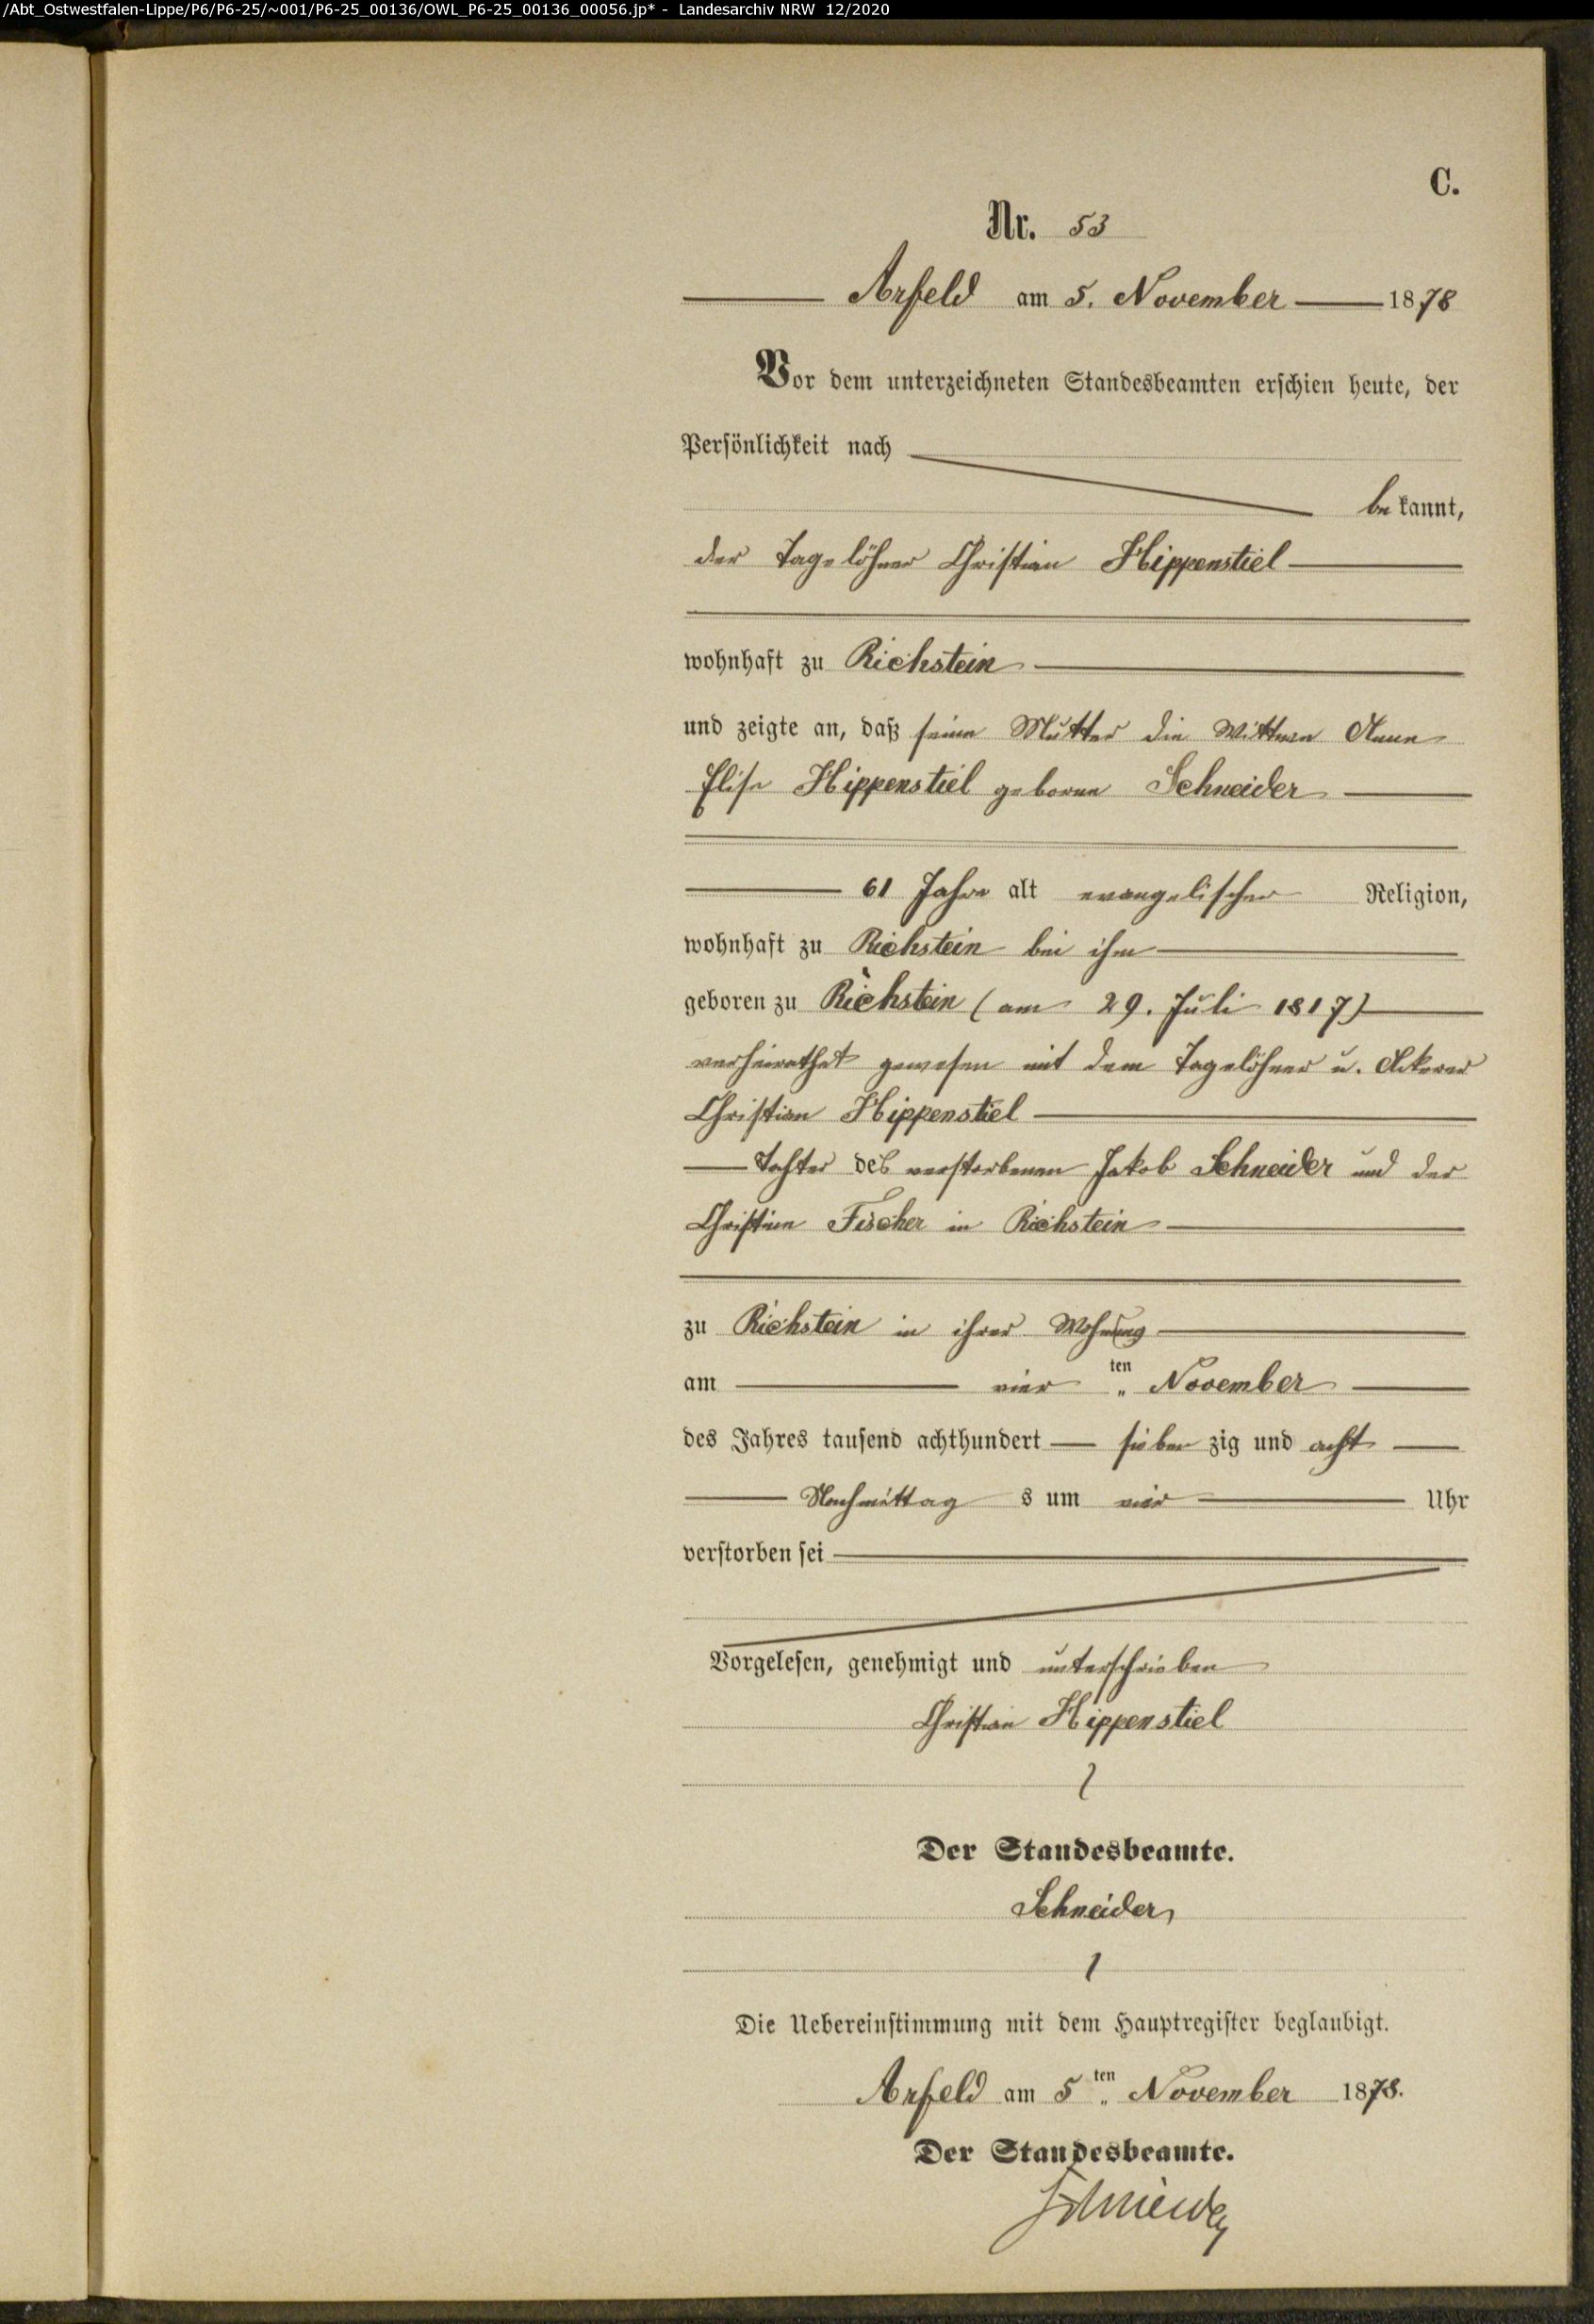 /Abt_Ostwestfalen-Lippe/P6/P6-25/~001/P6-25_00136/OWL_P6-25_00136_00056.jp* - Landesarchiv NRW 12/2020
C.
Nr. 53
Arfeld am 5. November 1878
Vor dem unterzeichneten Standesbeamten erschien heute, der
Persönlichkeit nach
be kannt,
der Tagelöhner Christian Hippenstiel
wohnhaft zu Richstein
und zeigte an, daß seine Mutter die Wittwe Anne
Elise Hippenstiel geborne Schneider
61 Jahre alt evangelischer Religion,
wohnhaft zu Richstein bei ihm
geboren zu Richstein (am 29. Juli 1817)
verheirathet gewesen mit dem Tagelöhner u. Ackerer
Christian Hippenstiel
Tochter des verstorbenen Jakob Schneider und der
Christine Fischer in Richstein
zu Richstein in ihrer Wohnung
am vier ten November
des Jahres tausend achthundert sieben zig und acht
Nachmittag s um vier Uhr
verstorben sei
Vorgelesen, genehmigt und unterschrieben
Christian Hippenstiel
Der Standesbeamte.
Schneider
Die Uebereinstimmung mit dem Hauptregister beglaubigt.
Arfeld am 5 ten November 1878.
Der Standesbeamte.
Schneider